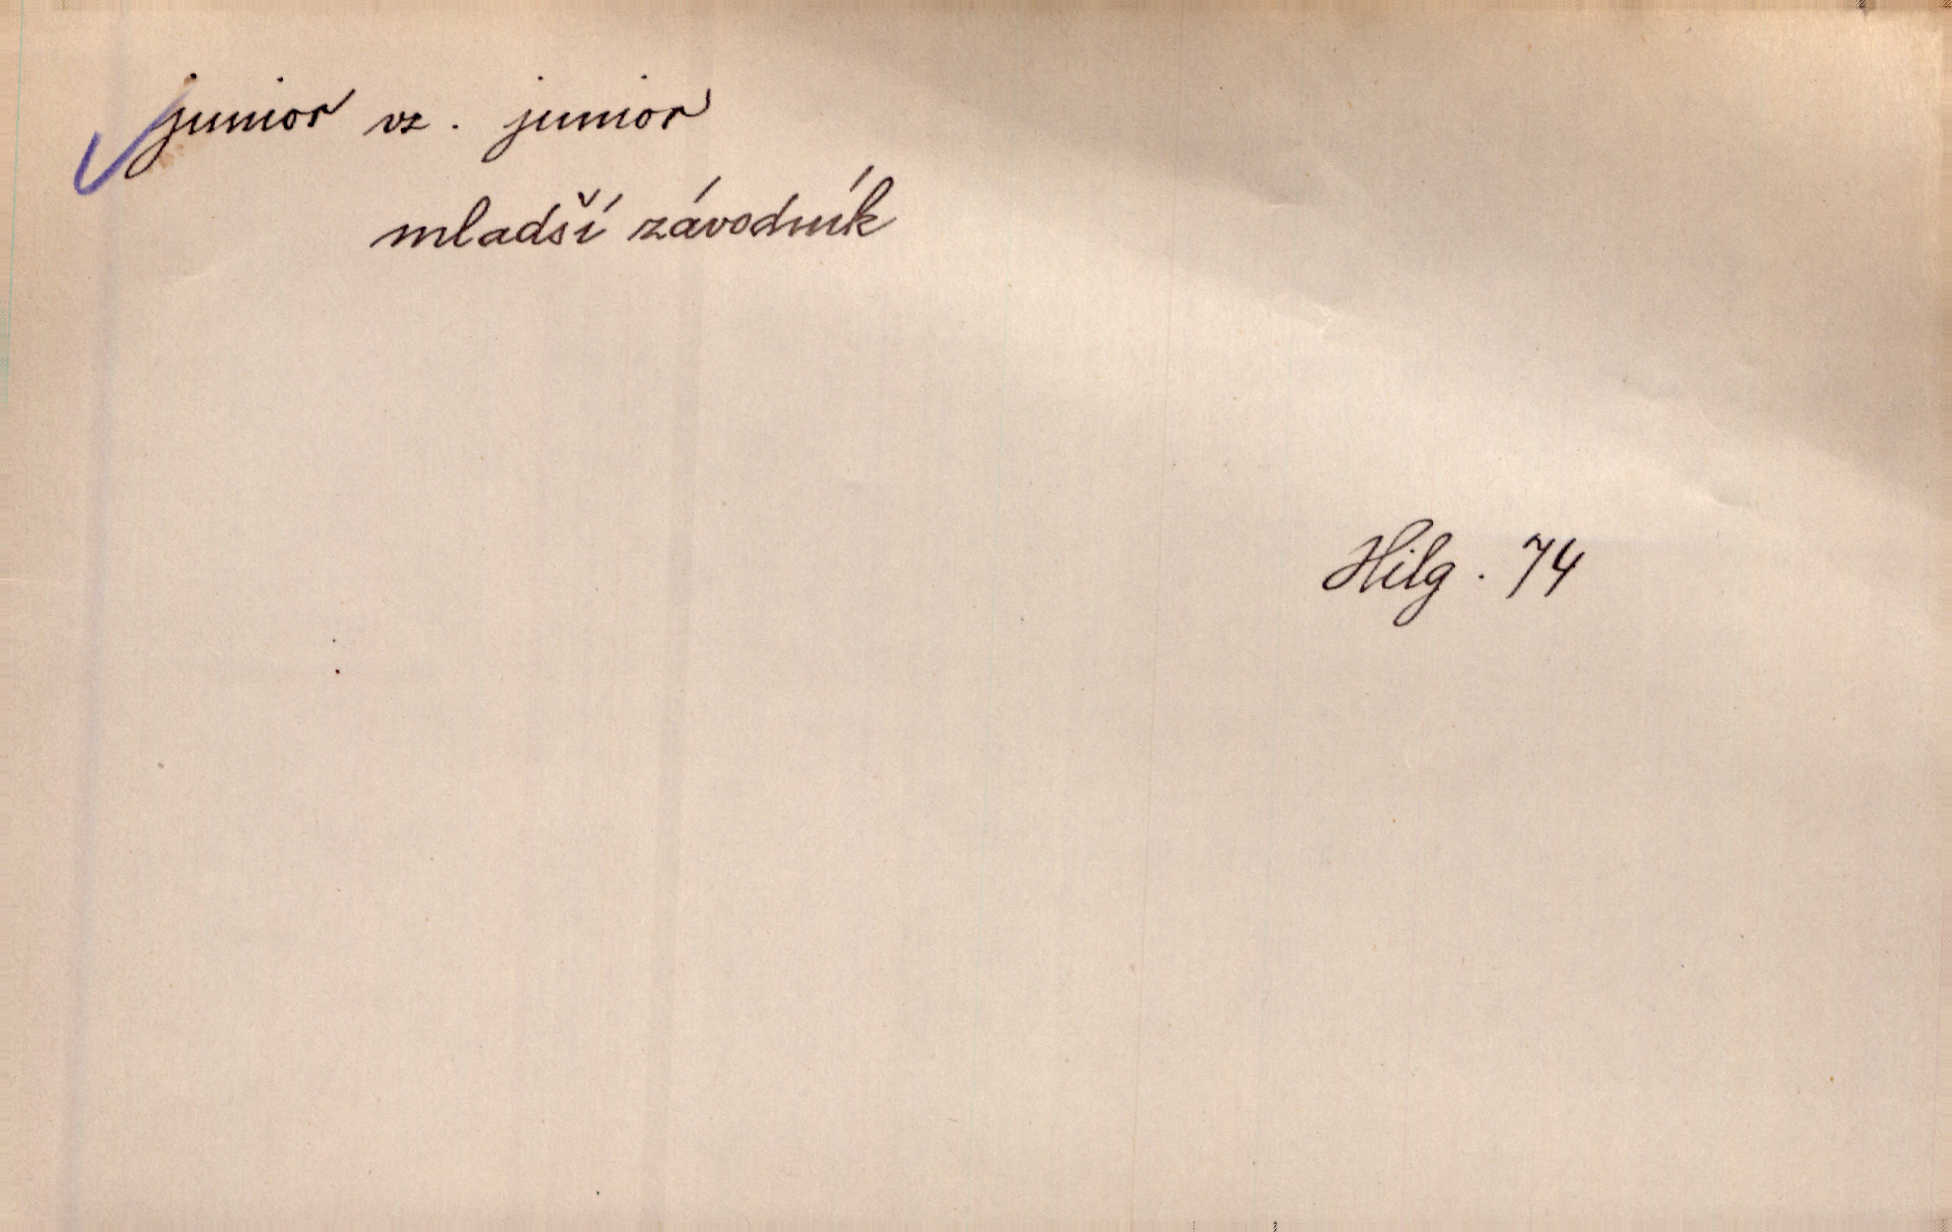 junior vz. junior
mladší závodník
Hilg. 74